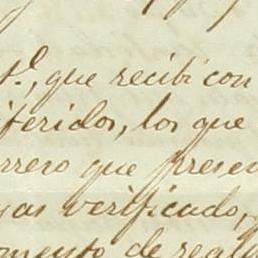 que recibi con
feridos, los que
rrero que presen
yas verificado,
mento de regla